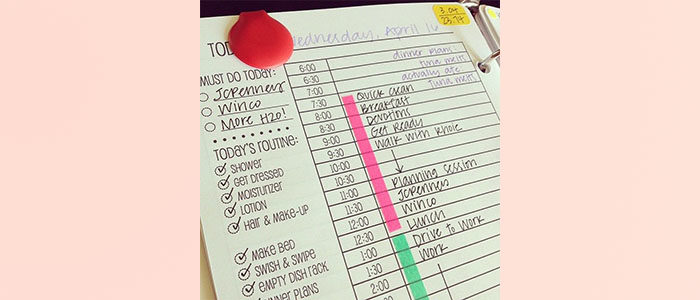 TOD
Wednesday, April 16
3.04
23.74
MUST DO TODAY:
JCPenneys
Winco
More H2O!
TODAY'S ROUTINE:
SHOWER
GET DRESSED
MOISTURIZER
LOTION
HAIR & MAKE-UP
MAKE BED
SWISH & SWIPE
EMPTY DISH RACK
DINNER PLANS
dinner plans
tuna melts
actually ate
tuna melts
6:00
6:30
7:00 Quick clean
7:30 Breakfast
8:00 Devotions
8:30 Get Ready
9:00 Walk with
9:30
10:00
10:30 Planning session
11:00 JCPenneys
11:30 Winco
12:00 Lunch
12:30 Drive to Work
1:00 Work
1:30
2:00